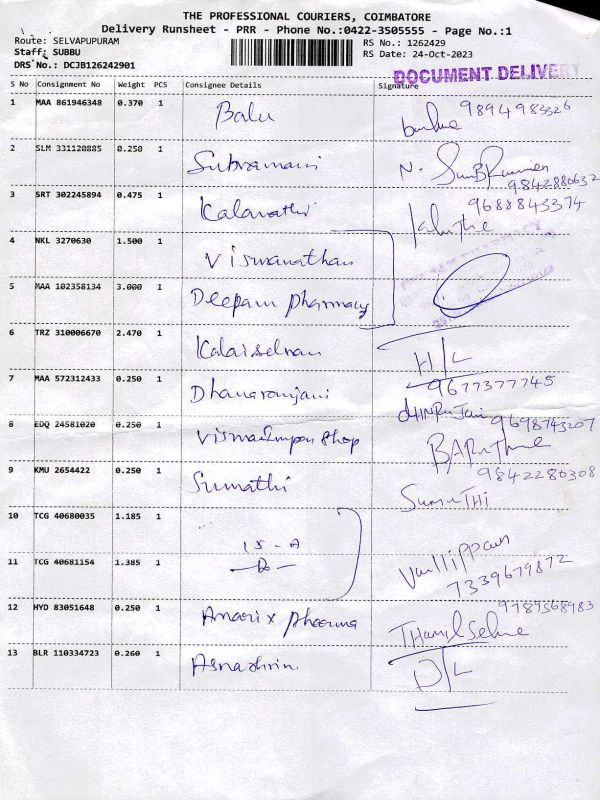 THE PROFESSIONAL COURIERS, COIMBATORE
Delivery Runsheet - PRR - Phone No.:0422-3505555 - Page No.:1
Route: SELVAPUPURAM RS No.: 1262429
Staff: SUBBU RS Date: 24-Oct-2023
DRS No.: DCJB126242901
DOCUMENT DELIVERY
S No Consignment No Weight PCS Consignee Details Signature
1 MAA 861946348 0.370 1 Balu 9894983326
2 SLM 331120885 0.250 1 Subramani N.
9842886632
3 SRT 302245894 0.475 1 Kalavathi 9688843374
4 NKL 3270630 1.500 1 Viswanathan
5 MAA 102358134 3.000 1 Deepam Pharmacy
6 TRZ 310006670 2.470 1 Kalaiselvan H/L
7 MAA 572312433 0.250 1 Dhanaranjani 9677377745
8 EDQ 24581020 0.250 1 Shop 9698743207
9 KMU 2654422 0.250 1 Sumathi 9842286308
SumuTHi
10 TCG 40680035 1.185 1 15-A
11 TCG 40681154 1.385 1 -Do- 7339679872
12 HYD 83051648 0.250 1 Pharma 9789568983
13 BLR 110334723 0.260 1 D/L